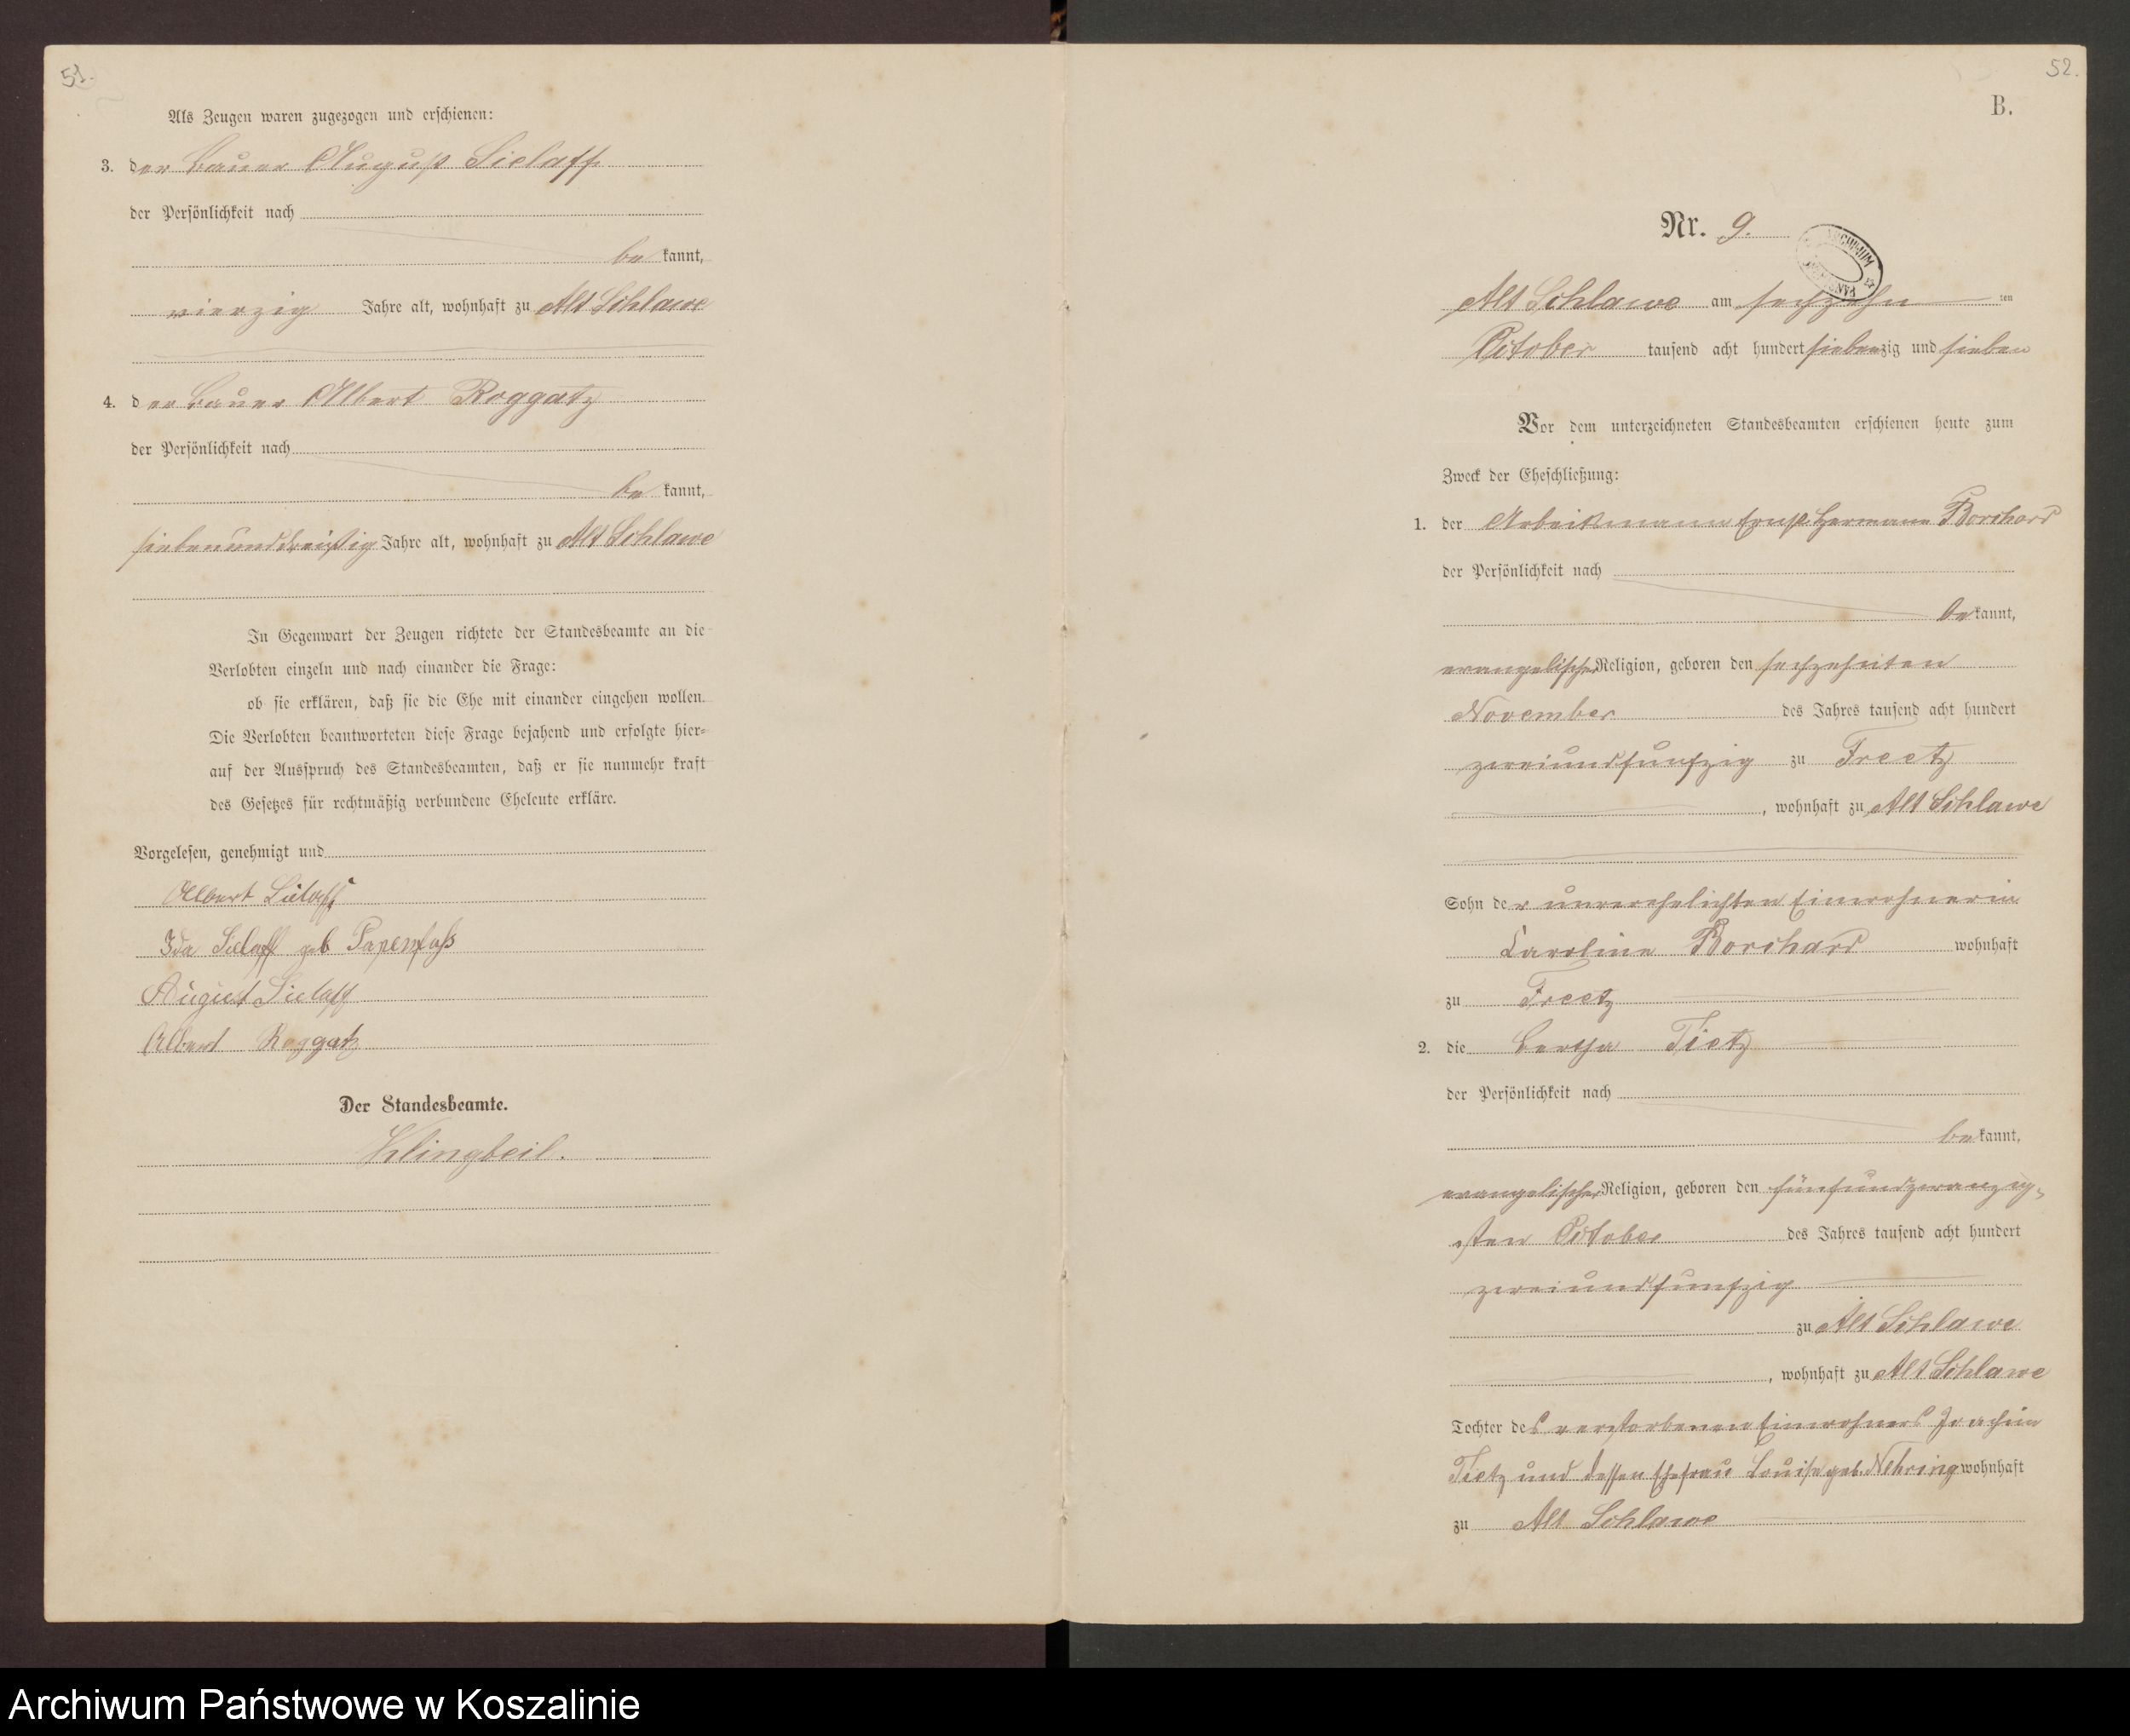 51.
Als Zeugen waren zugezogen und erschienen:
3. der Bauer August Sielaff
der Persönlichkeit nach
be kannt,
vierzig Jahre alt, wohnhaft zu Alt Schlawe
4. der Bauer Albert Roggatz
der Persönlichkeit nach
be kannt,
siebenunddreißig Jahre alt, wohnhaft zu Alt Schlawe
In Gegenwart der Zeugen richtete der Standesbeamte an die
Verlobten einzeln und nach einander die Frage:
ob sie erklären, daß sie die Ehe mit einander eingehen wollen.
Die Verlobten beantworteten diese Frage bejahend und erfolgte hier-
auf der Ausspruch des Standesbeamten, daß er sie nunmehr kraft
des Gesetzes für rechtmäßig verbundene Eheleute erkläre.
Vorgelesen, genehmigt und
Albert Sielaff
Ida Sielaff geb Papenfuß
August Sielaff
Albert Roggatz
Der Standesbeamte.
Klingbeil.
52.
B.
Nr. 9.
ARCHIWUM
Alt Schlawe am sechzehn ten
October tausend acht hundert siebenzig und sieben
Vor dem unterzeichneten Standesbeamten erschienen heute zum
Zweck der Eheschließung:
1. der Arbeitsmann Ernst Hermann Borchard
der Persönlichkeit nach
be kannt,
evangelischer Religion, geboren den sechzehnten
November des Jahres tausend acht hundert
zweiundfunfzig zu Freetz
, wohnhaft zu Alt Schlawe
Sohn der unverehelichten Einwohnerin
Caroline Borchard wohnhaft
zu Freetz
2. die Bertha Tietz
der Persönlichkeit nach
be kannt,
evangelischer Religion, geboren den fünfundzwanzig-
sten October des Jahres tausend acht hundert
zweiundfunfzig
zu Alt Schlawe
, wohnhaft zu Alt Schlawe
Tochter des verstorbenen Einwohners Joachim
Tietz und dessen Ehefrau Louise geb. Nehring wohnhaft
zu Alt Schlawe
Archiwum Państwowe w Koszalinie